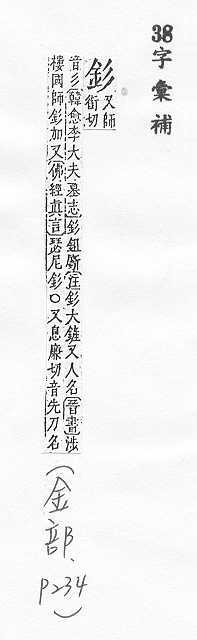 38字彙補
釤 又師銜切
音彡韓愈李大夫墓志釤鉏厮注釤大鎌又人名晉書涉
樓國師釤加又佛經真言瑟尼釤○又息廉切音先刀名
(金部、P234)